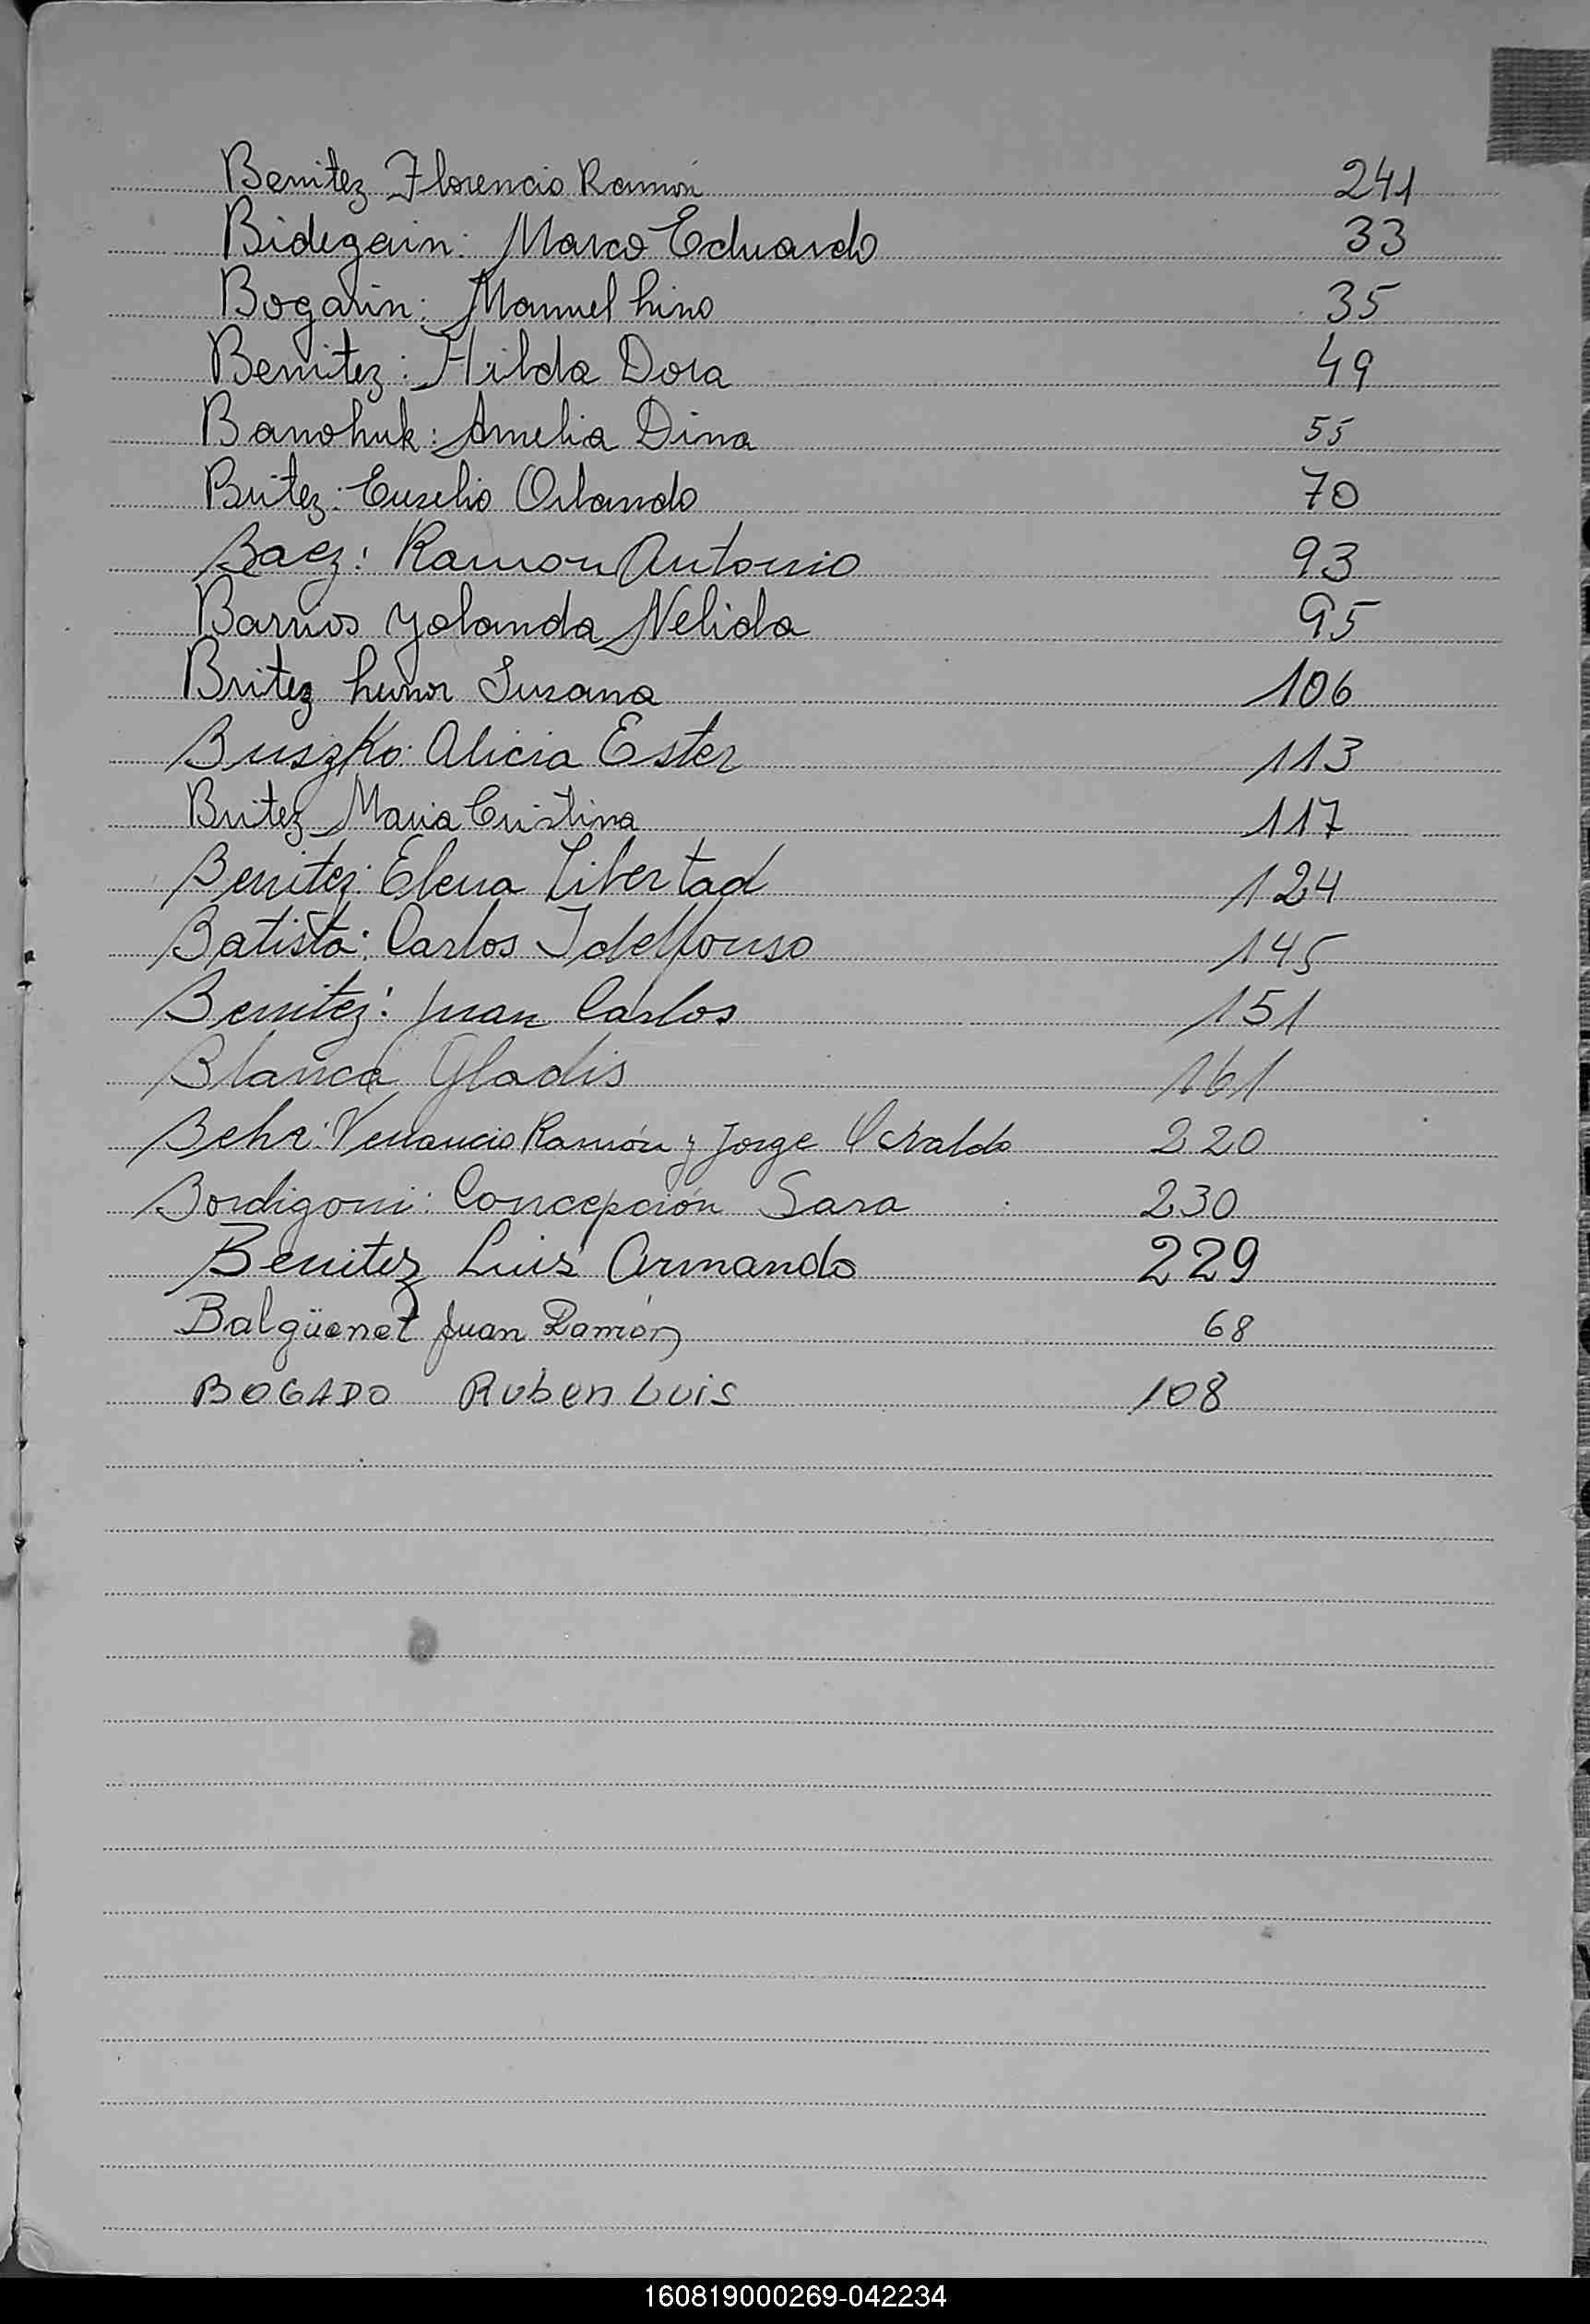 Benitez Florencio Ramón 241
Bidegain: Marco Eduardo 33
Bogarin: Manuel Lino 35
Benitez: Hilda Dora 49
Banohuk: Amelia Dina 55
Britez: Eusebio Orlando 70
Baez: Ramon Antonio 93
Barrios Yolanda Nelida 95
Britez Susana 106
Buszko: Alicia Ester 113
Britez Maria Cristina 117
Benitez: Elena Libertad 124
Batista: Carlos Idelfonso 145
Benitez: Juan Carlos 151
Blanca Gladis 161
Behr: Venancio Ramón y Jorge Osvaldo 220
Bordigoni: Concepción Sara 230
Benitez Luis Armando 229
Balgüenet Juan Ramón 68
BOGADO Ruben Luis 108
160819000269-042234